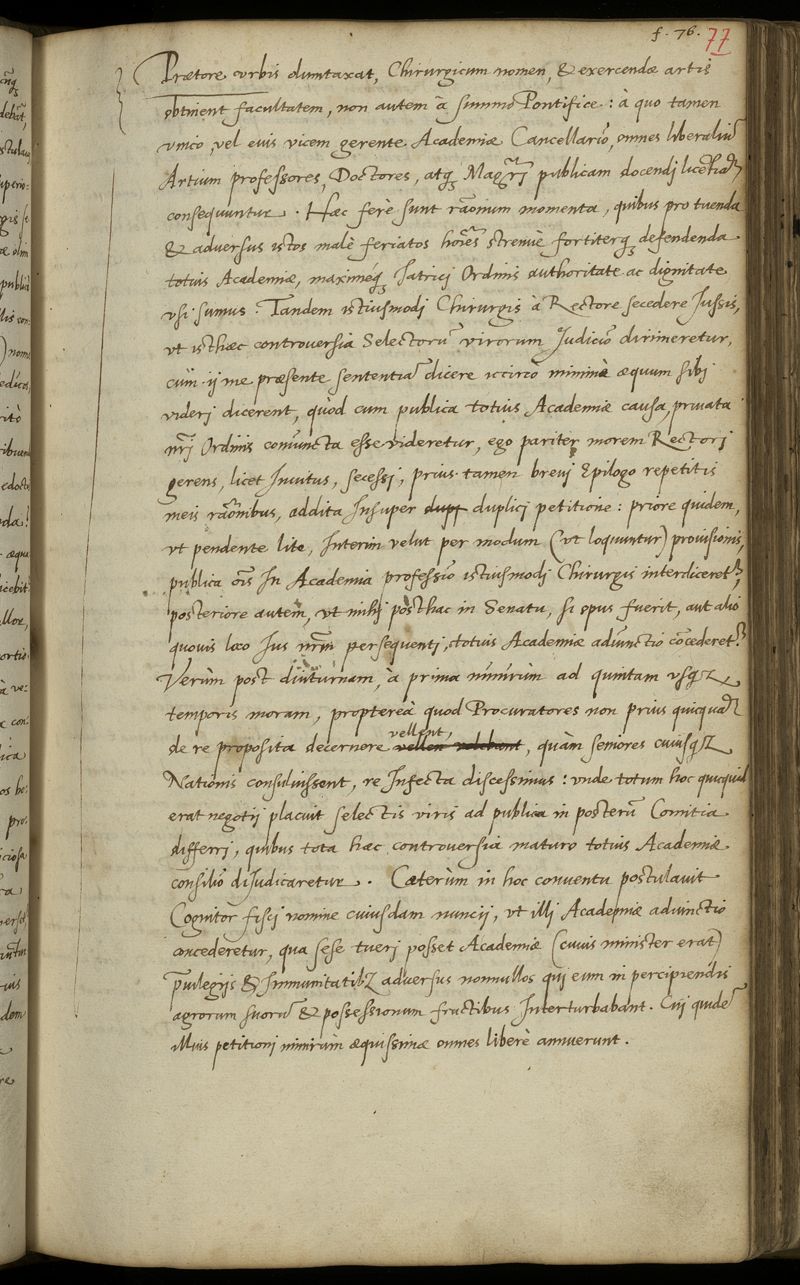 f. 76. 77
Prætore vrbis duntaxat, Chirurgicum nomen, & exercendæ artis
obtinent facultatem, non autem a summo Pontifice: à quo tamen
vnico, vel eius vicem gerente Academiæ Cancellario, omnes liberaliũ
Artium professores, Doctores, atq; Magrĩ publicam docendi licẽtiã
consequuntur. Hæc ferè sunt raõnum momenta, quibus pro tuenda
& adversus istos malè feriatos hoĩes strenuè fortiterq; defendenda
totius Academiæ, maximeq; Iatrici Ordinis authoritate ac dignitate
vsi sumus. Tandem istiusmodj Chirurgis à Rectore secedere Jussis,
vt isthæc controversia Selectorũ virorum Judicio dirimeretur,
cùm ij me præsente sententiã dicere iccirco minimè æquum sibj
viderj dicerent, quòd cum publica totius Academiæ causa, privata
nrĩ Ordinis coniuncta esse videretur, ego pariter morem Rectorj
gerens, licet Invitus, secessi, prius tamen brevj Epilogo repetitis
meis raõnibus, addita Insuper dupp duplicj petitione: priore quidem,
vt pendente lite, Interim velut per modum (vt loquuntur) provisionis,
publica oĩs In Academia professio istiusmodj Chirurgis interdiceret̃,
posteriore autem, vt mihj posthac in Senatu, si opus fuerit, aut alio
quovis loco Jus nrũm persequentj, totius Academiæ adiũnctio cõcederet̃.
Verùm post diuturnam, à prima nimirùm ad quintam vsq;
temporis moram, proptereà quod Procuratores non prius quicquã
de re proposita decernere vellen volebant vellent, quàm seniores cuiusq;
Nationis consuluissent, re Infecta discessimus: vnde totum hoc quicquid
erat negotij placuit selectis viris ad publica in posterũ Comitia
differrj, quibus tota hæc controversia maturo totius Academiæ
consilio disudicaretur. Cæterùm in hoc conventu postulavit
Cognitor fiscj nomine cuiusdam nuncij, vt illj Academiæ adiunctio
concederetur, qua sese tuerj posset Academiæ (cuius minister erat)
p̃uilegijs & Immunitatibz adversus nonnullos quj eum in percipiendis
agrorum suorũ & possessionum fructibus Interturbabant. Cuj quidẽ
illius petitionj nimirùm æquissimæ omnes liberè annuerunt.